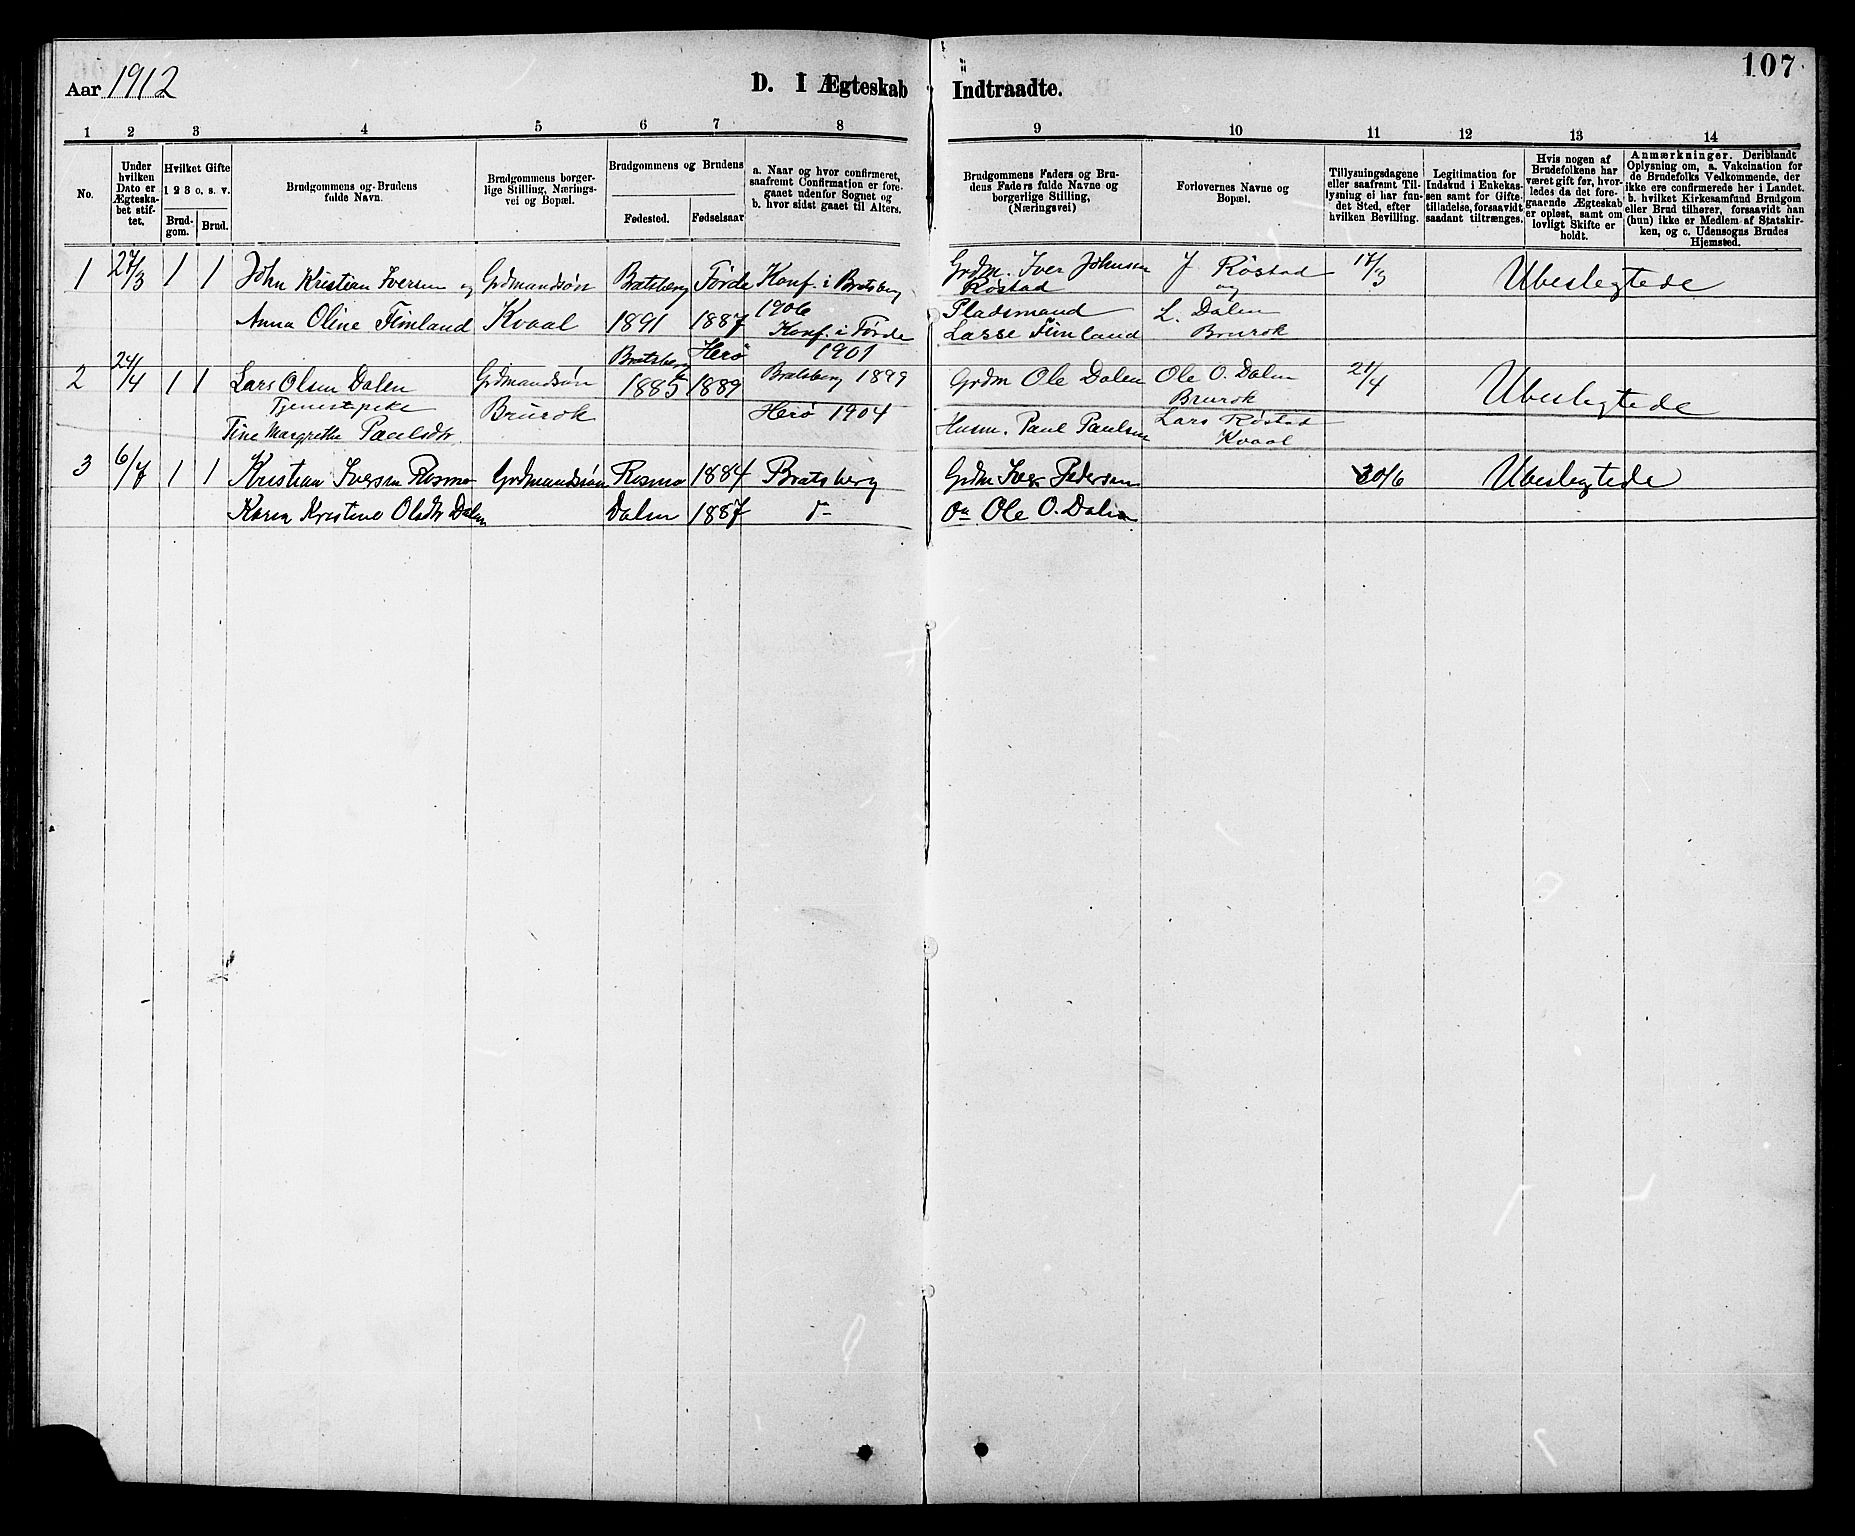 Aar 1912
D. I Ægteskab Indtraadte.
107
1 2 3 4 5 6 7 8 9 10 11 12 13 14
No.
Under hvilken Dato er Ægteskabet stiftet.
Hvilket Gifte
1 2 3 o. s. v.
Brudgom.
Brud.
Brudgommens og Brudens fulde Navn.
Brudgommens borgerlige Stilling, Næringsvei og Bopæl.
Brudgommens og Brudens
Fødested.
Fødselsaar
a. Naar og hvor confirmeret, saafremt Confirmation er foregaaet udenfor Sognet og b. hvor sidst gaaet til Alters.
Brudgommens Faders og Brudens Faders fulde Navne og borgerlige Stilling, (Næringsvei)
Forlovernes Navne og Bopæl.
Tillysningsdagene eller saafremt Tillysning ei har fundet Sted, efter hvilken Bevilling.
Legitimation for Indskud i Enkekassen samt for Giftetilladelse, forsaavidt saadant tiltrænges.
Hvis nogen af Brudefolkene har været gift før, hvorledes da det foregaaende Ægteskab er opløst, samt om lovligt Skifte er holdt.
Anmærkninger. Deriblandt Oplysning om, a. Vakcination for de Brudefolks Vedkommende, der ikke ere confirmerede her i Landet. b. hvilket Kirkesamfund Brudgom eller Brud tilhører, forsaavidt han (hun) ikke er Medlem af Statskirken, og c. Udensogns Brudes Hjemsted.
1 27/3 1 1 John Kristian Iversen og Grdmandsøn Bratsberg Førde Konf. i Bratsberg Grdm. Iver Johnsen J Røstad 17/3 Ubeslegtede
Røstad og
Anna Oline Fimland Kvaal 1891 1887 1906 Pladsmand L. Dalen
Konf. i Førde Lasse Fimland Brurok
Bratsberg Herø 1901
2 24/4 1 1 Lars Olsen Dalen Grdmandsøn 1885 1889 Bratsberg 1899 Grdm Ole Dalen Ole O. Dalen 21/4 Ubeslegtede
Tjenestpike Brurok Herø 1904 Brurok
Tine Margrethe Paulsdtr Husm. Paul Paulsen Lars Røstad
Kvaal
3 6/7 1 1 Kristian Iversen Rosmo Grdmandsøn Rosmo 1884 Bratsberg Grdm Iver Pedersen 30/6 Ubeslegtede
Karen Kristine Olsdtr Dalen Dalen 1887 Ole O. Dalen